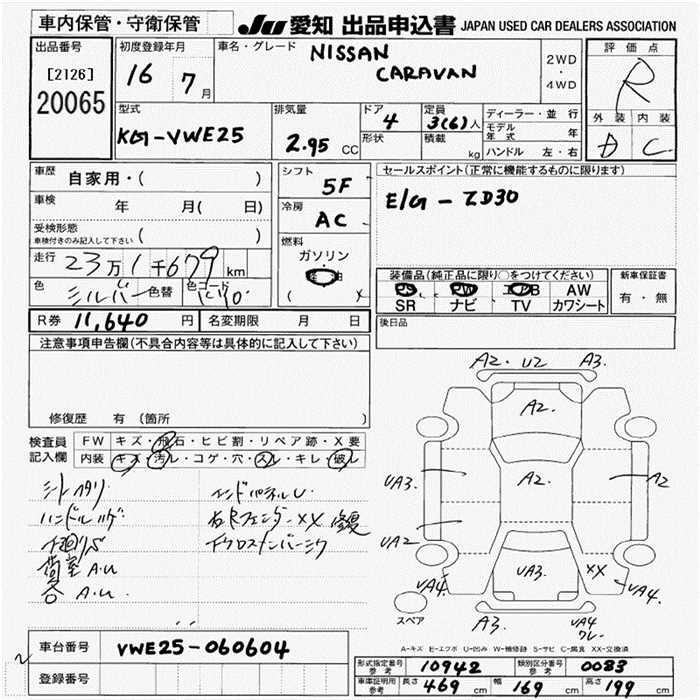 車内保管・守衛保管
JU 愛知 出品申込書 JAPAN USED CAR DEALERS ASSOCIATION
出品番号
[2126]
20065
初度登録年月
16 7月
車名・グレード
NISSAN
CARAVAN
2WD
・
4WD
評価点
R
外装 内装
D C
型式
KG-VWE25
排気量
2.95 CC
ドア
4
形状
定員
3(6)人
積載
kg
ディーラー・並行
モデル年式 年
ハンドル 左・右
車歴
自家用・( )
車検
年 月( 日)
受検形態
車検付きのみ記入して下さい ( )
走行
23万1千679km
色
シルバー
色替
色コード
KY0
シフト
5F
冷房
AC
燃料
ガソリン
( )
セールスポイント(正常に機能するものに限ります)
E/G-ZD30
装備品(純正品に限り○をつけてください)
PS PW エアB AW
SR ナビ TV カワシート
新車保証書
有・無
後日品
R券 11,640 円
名変期限 月 日
注意事項申告欄(不具合内容等は具体的に記入して下さい)
修復歴 有(箇所 )
検査員
記入欄
FW キズ・飛石・ヒビ割・リペア跡・X要
内装 キズ・汚レ・コゲ・穴・スレ・キレ・破レ
シートヘタリ
ハンドルハゲ
下廻りS
荷室A.U
各A.U.
エンドパネルU
右Rフェンダー XX 修復
A2. U2 A3.
A2.
A2.
UA3.
A2
UA2
UA3.
XX
UA4
UA4
A3.
UA4
ワレ
スペア
A-キズ E-エクボ U-凹み W-補修跡 S-サビ C-腐食 XX-交換済
車台番号 VWE25-060604
登録番号
形式指定番号参考 10942
類別区分番号参考 0083
車庫証明用参考 長さ 469 cm 幅 169 cm 高さ 199 cm